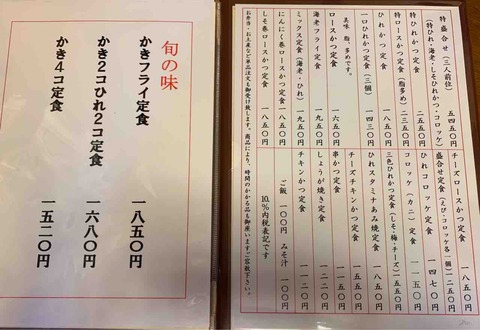 特盛合せ(三人前位) 五四五〇円
(特ひれ・海老・しそひれかつ・コロッケ)
特ひれかつ定食 二五五〇円
特ロースかつ定食(脂多め) 二三五〇円
ひれかつ定食 一八五〇円
一口ひれかつ定食(三個) 一四三〇円
美味 脂、多めです。
ロースかつ定食 一六五〇円
海老フライ定食 一九五〇円
ミックス定食(海老・ひれ) 一九五〇円
にんにく巻ロースかつ定食 一八五〇円
しそ巻ロースかつ定食 一八五〇円
チーズロースかつ定食 一八五〇円
盛合せ定食(えび・コロッケ各一個)
ひれコロッケ定食 一四七〇円
コロッケ(カニ)定食 一一五〇円
三色ひれかつ定食(しそ・梅・チーズ)
ひれスタミナあみ焼定食 一八五〇円
チーズチキンかつ定食 一五五〇円
串かつ定食 一五五〇円
しょうが焼き定食 一一二〇円
チキンかつ定食
ご飯 一〇〇円 みそ汁 一〇〇円
10%内税表記です
お弁当・お土産など単品注文も御受け致します。商品により、時間のかかる品も御座いますご容赦下さい。
旬の味
かきフライ定食 一八五〇円
かき2コひれ2コ定食 一六八〇円
かき4コ定食 一五二〇円